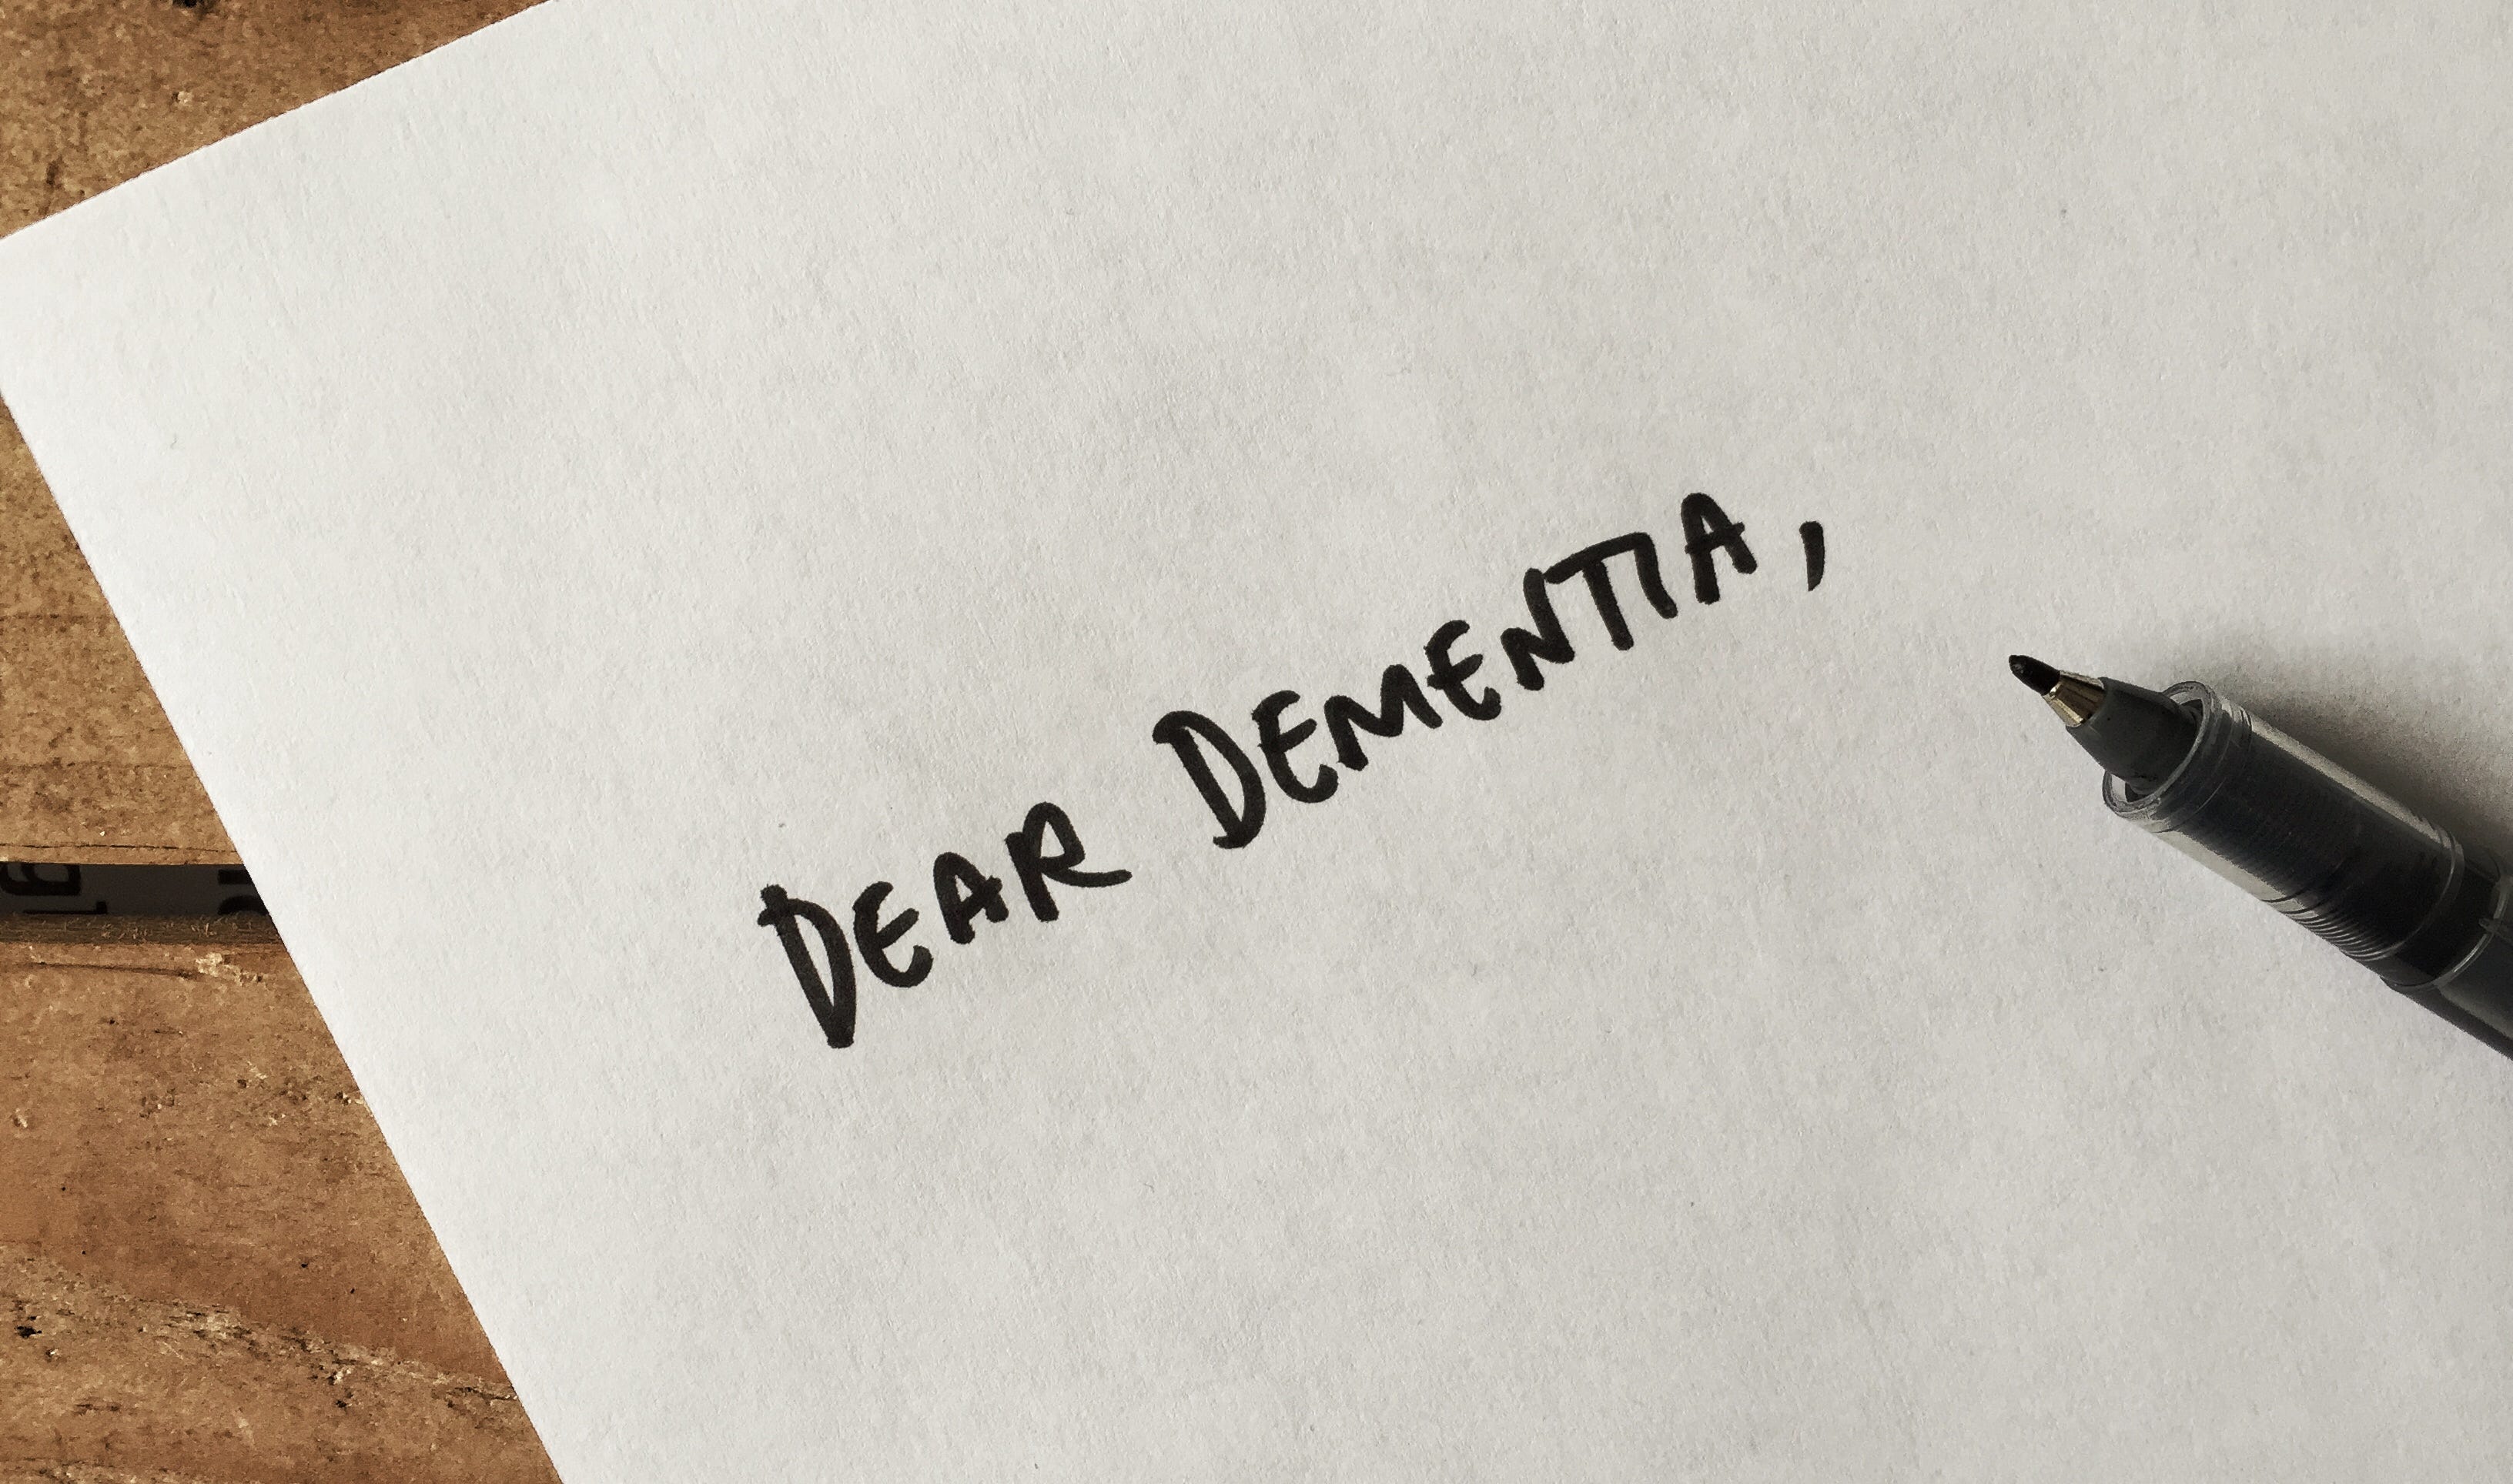 DEAR DEMENTIA,